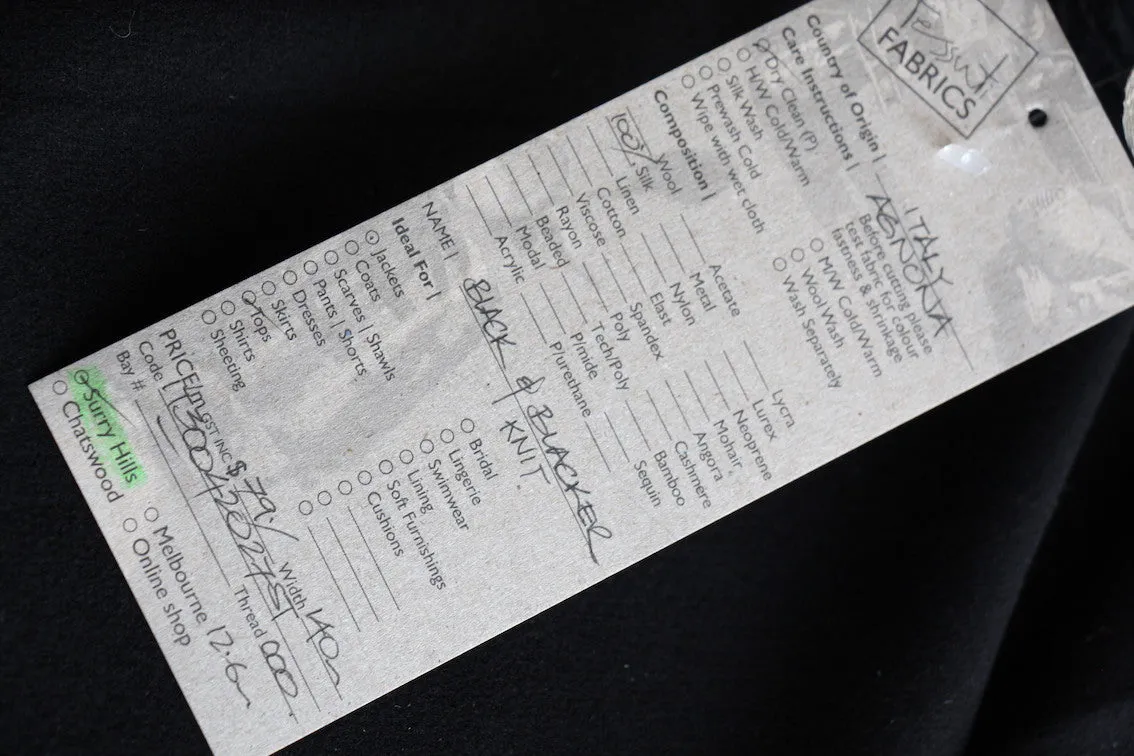 Tessuti
FABRICS
Country of Origin | ITALY
AGNONA
Care Instructions | Before cutting please
test fabric for colour
fastness & shrinkage
Dry Clean (P)
H/W Cold/Warm M/W Cold/Warm
Silk Wash Wool Wash
Prewash Cold Wash Separately
Wipe with wet cloth
Composition |
Wool Acetate Lycra
100% Silk Metal Lurex
Linen Nylon Neoprene
Cotton Elast Mohair
Viscose Spandex Angora
Rayon Poly Cashmere
Beaded Tech/Poly Bamboo
Modal P/mide Sequin
Acrylic P/urethane
NAME | BLACK & BLACKER
KNIT.
Ideal For |
Jackets Bridal
Coats Lingerie
Scarves | Shawls Swimwear
Pants | Shorts Lining
Dresses Soft Furnishings
Skirts Cushions
Tops
Shirts
Sheeting
PRICE/m GST INC $79./ Width 140
Code Thread 000
Bay #
Surry Hills Melbourne
Chatswood Online shop